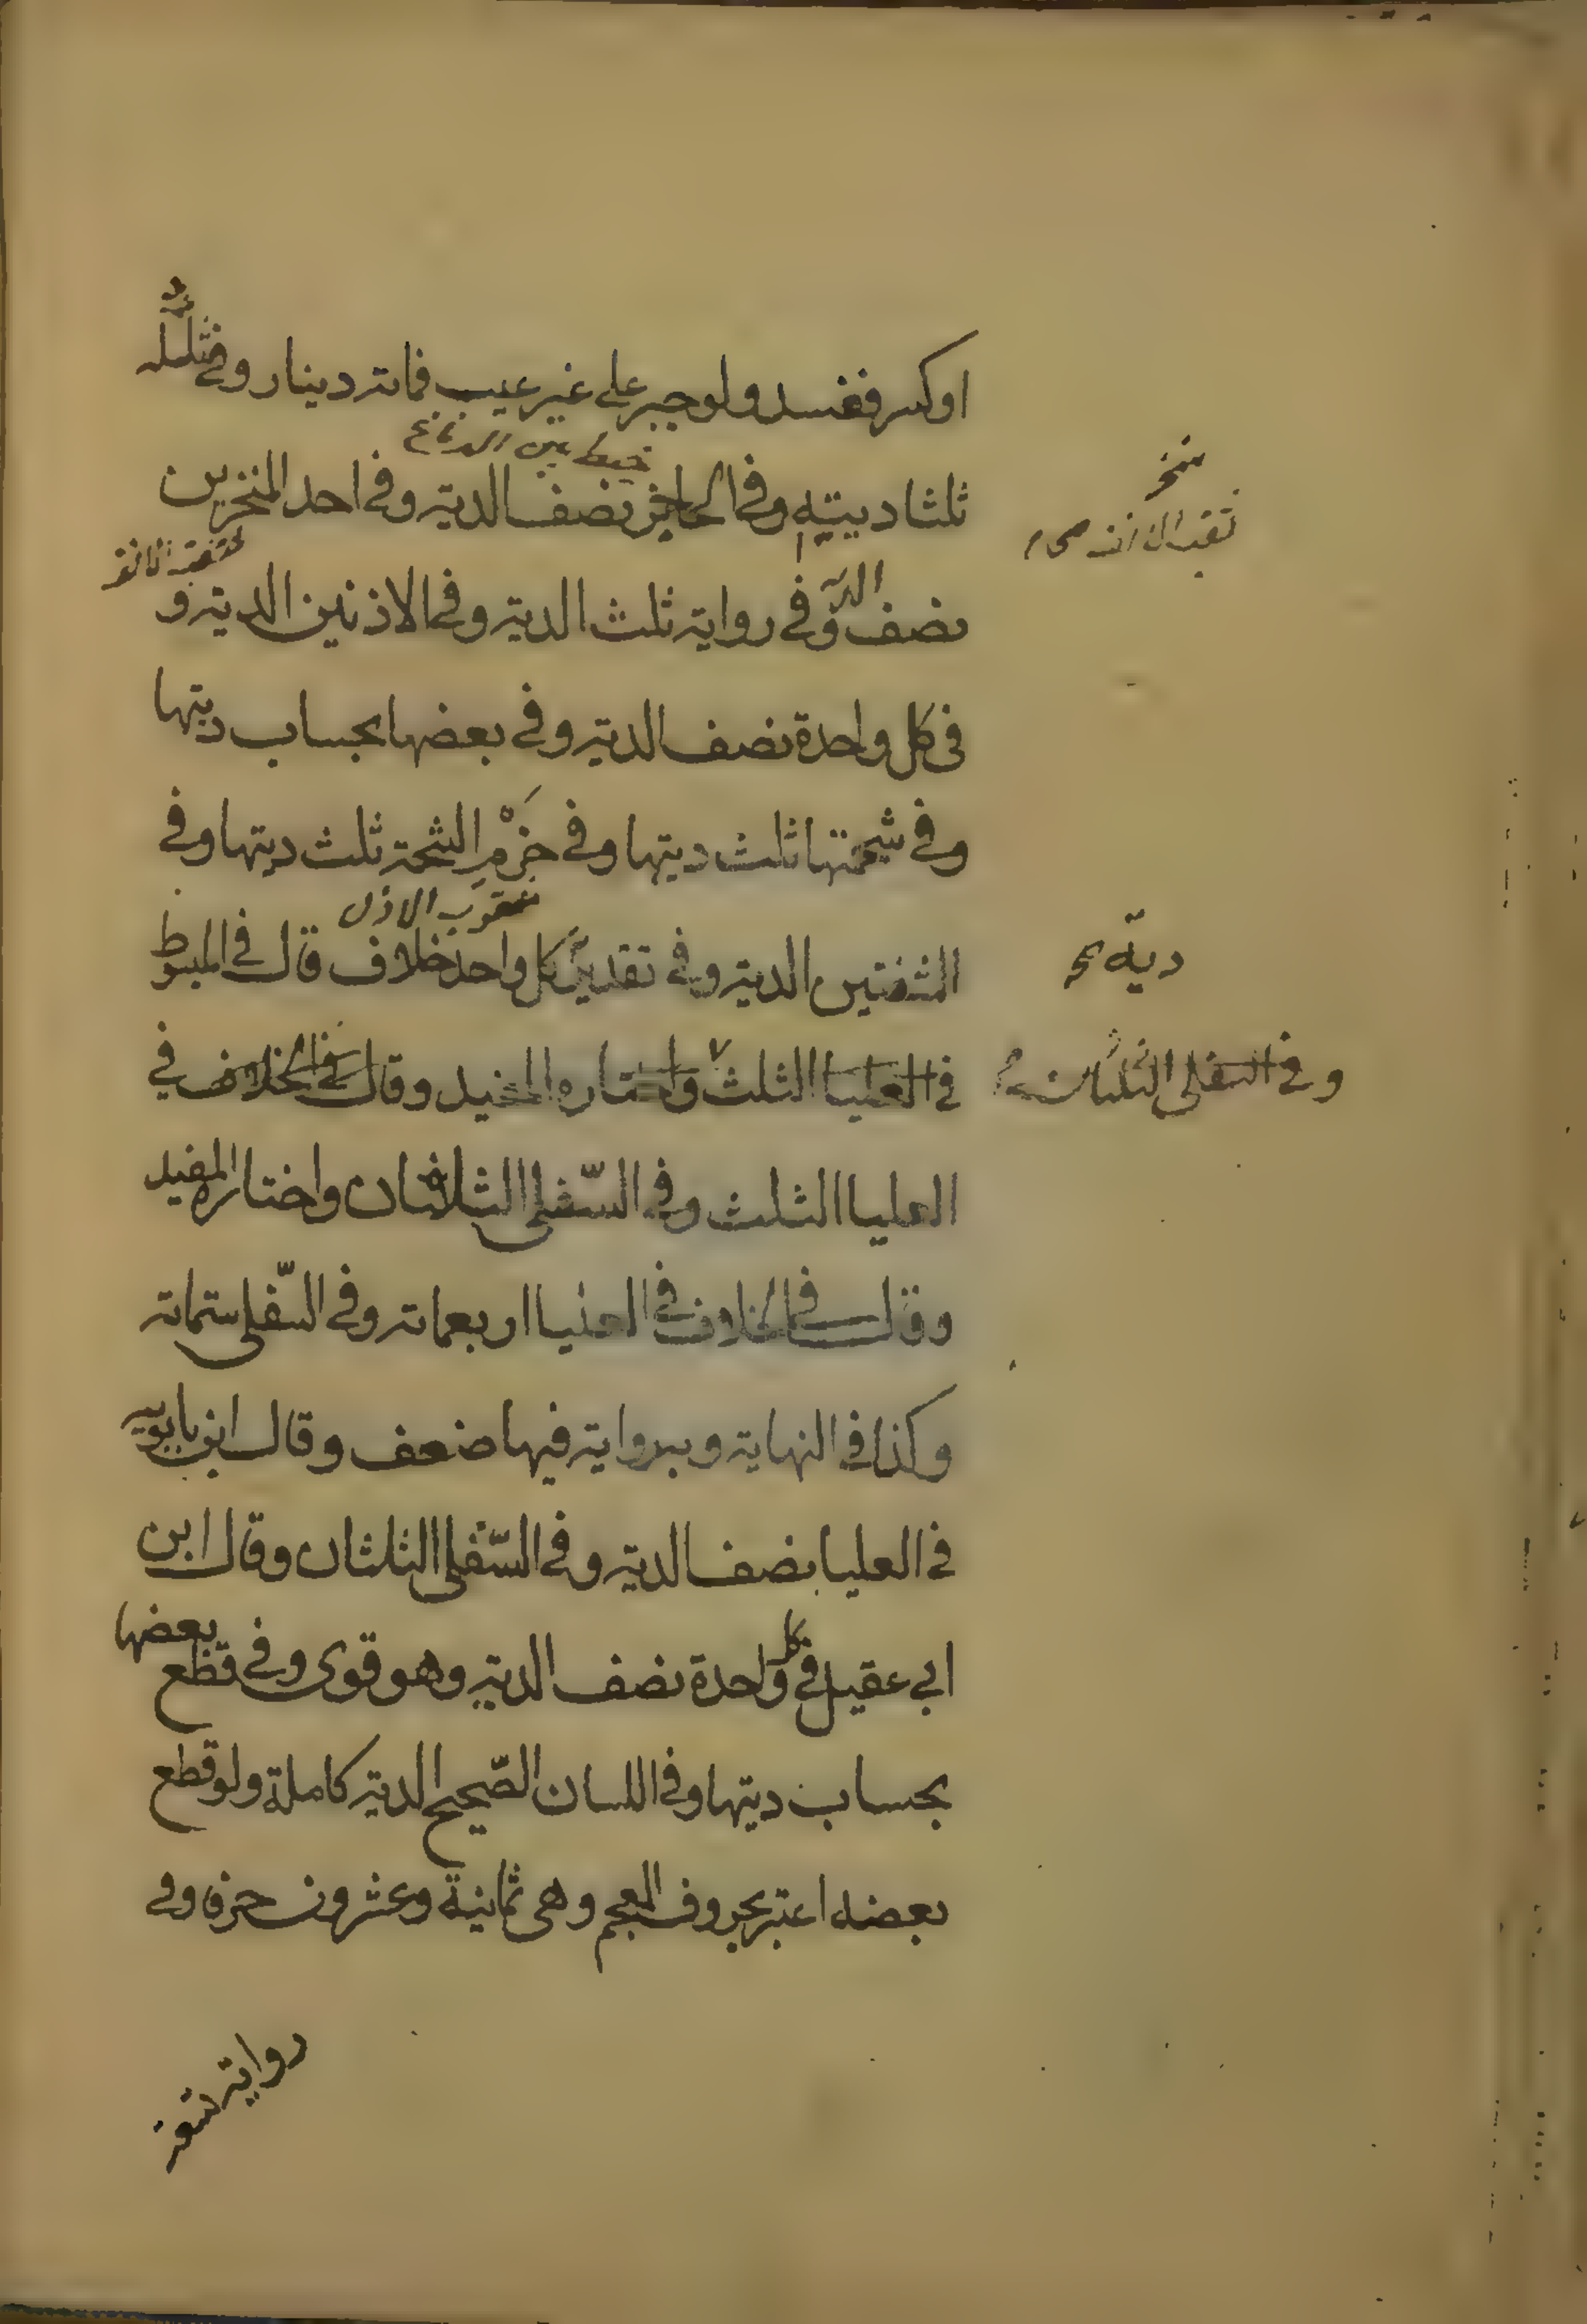 او كسر ففسد ولو جبر على غير عيب فمائة دينار وفي شلله
ثلثا ديته وفي الحاجز نصف الدية وفي احد المنخرين
نصف الدية وفي رواية ثلث الدية وفي الاذنين الدية و
في كل واحدة نصف الدية وفي بعضها بحساب ديتها
وفي شحمتها ثلث ديتها وفي خَرْمِ الشحمة ثلث ديتها وفي
الشفتين الدية وفي تقدير كل واحد خلاف قال في المبسوط
دية
في العليا الثلث واختاره المفيد وقال في الخلاف في
وفي السفلى الثلثان
العليا الثلث وفي السّفلى الثلاثان واختاره المفيد
وقال في الخلاف في العليا اربعمائة وفي السّفلى ستمائة
وكذا في النهاية وبرواية فيها ضعف وقال ابن بابويه
في العليا نصف الدية وفي السّفلى الثلثان وقال ابن
ابي عقيل في كل واحدة نصف الدية وهو قوى وفي قطع بعضها
بحساب ديتها وفي اللسان الصّحيح الدية كاملة ولو قطع
بعضه اعتبر بحروف المعجم وهى ثمانية وعشرون حرفا وفي
رواية